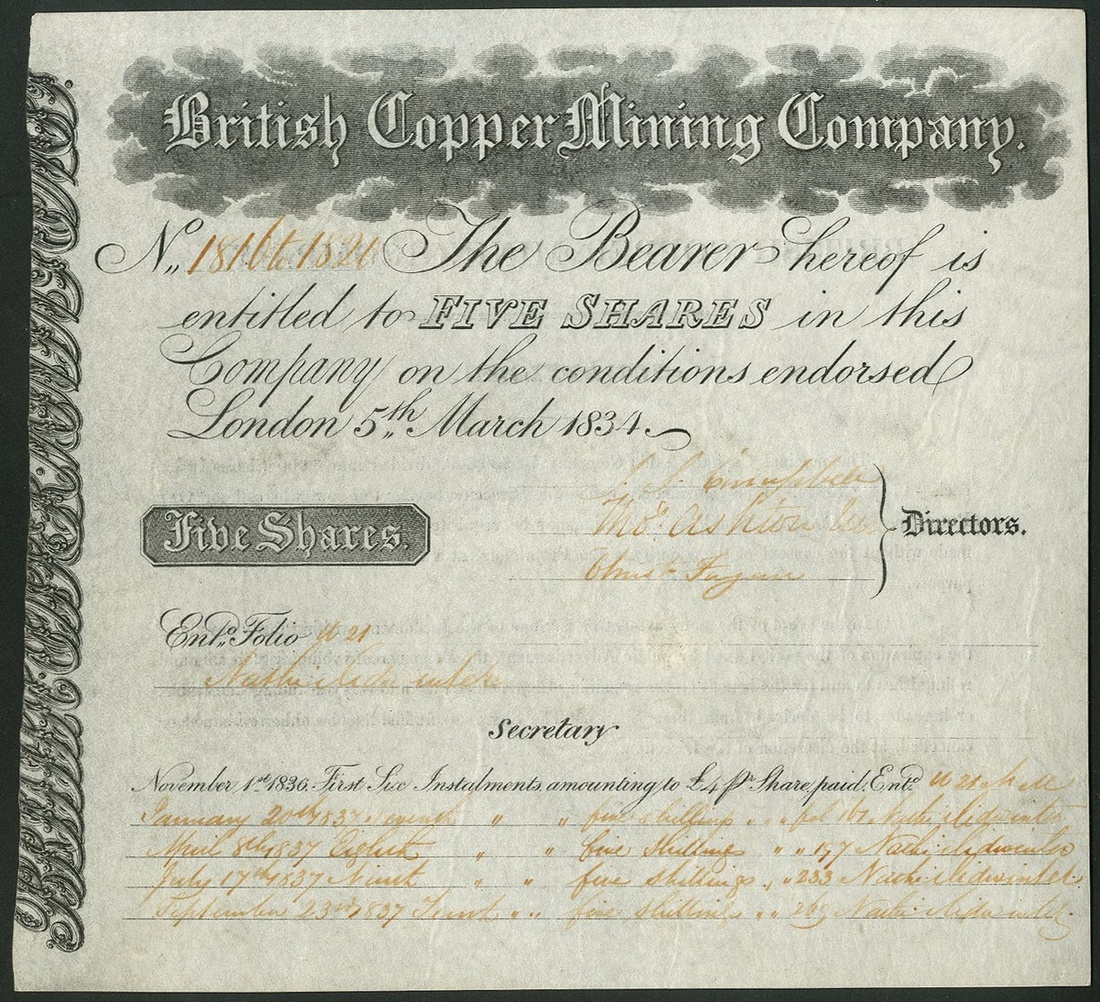 British Copper Mining Company.
No. 1816 to 1820 The Bearer hereof is
entitled to FIVE SHARES in this
Company on the conditions endorsed
London 5th March 1834.
Campbell
Thos. Ashton
Five Shares.
Directors.
Christr. Fagan
Entd. Folio 21
Secretary
November 1st 1836. First Six Instalments amounting to £4 pr Share, paid. Entd. 21
January 20th 1837 Seventh " " five shillings " " fol 161 Midwinter
April 8th 1837 Eighth " " five Shillings " " 197 Midwinter
July 17th 1837 Ninth " " five shillings " " 233 Midwinter
September 23rd 1837 Tenth " " five shillings " " 269